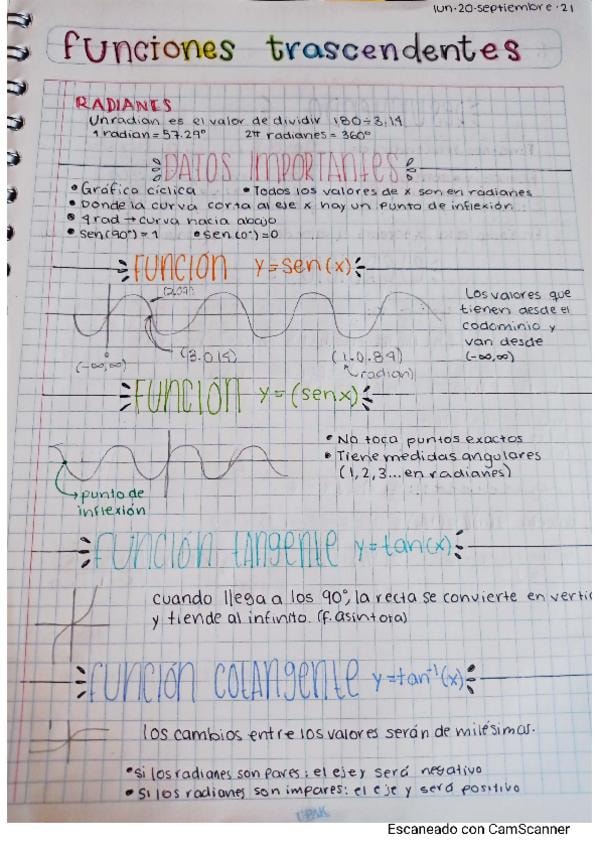 lun·20·septiembre·21
funciones trascendentes
RADIANES
Un radian es el valor de dividir 180÷3.14
1 radian = 57.29° 2π radianes = 360°
DATOS IMPORTANTES
• Gráfica cíclica • Todos los valores de x son en radianes
• Donde la curva corta al eje x hay un punto de inflexión
• grad → curva hacia abajo
• sen(90°)=1 • sen(0°)=0
FUNCIÓN y=sen(x)
Los valores que
tienen desde el
codominio y
van desde
(-∞,∞)
(-∞,∞) (3.0,15) (1.0.84)
radian
FUNCIÓN y=(senx)
• No toca puntos exactos
• Tiene medidas angulares
(1,2,3... en radianes)
punto de
inflexión
FUNCIÓN tangente y=tan(x)
cuando llega a los 90°, la recta se convierte en vertic
y tiende al infinito. (f. asintota)
FUNCIÓN cotangente y=tan⁻¹(x)
los cambios entre los valores serán de milésimas.
• si los radianes son pares: el eje y será negativo
• Si los radianes son impares: el eje y será positivo
Escaneado con CamScanner